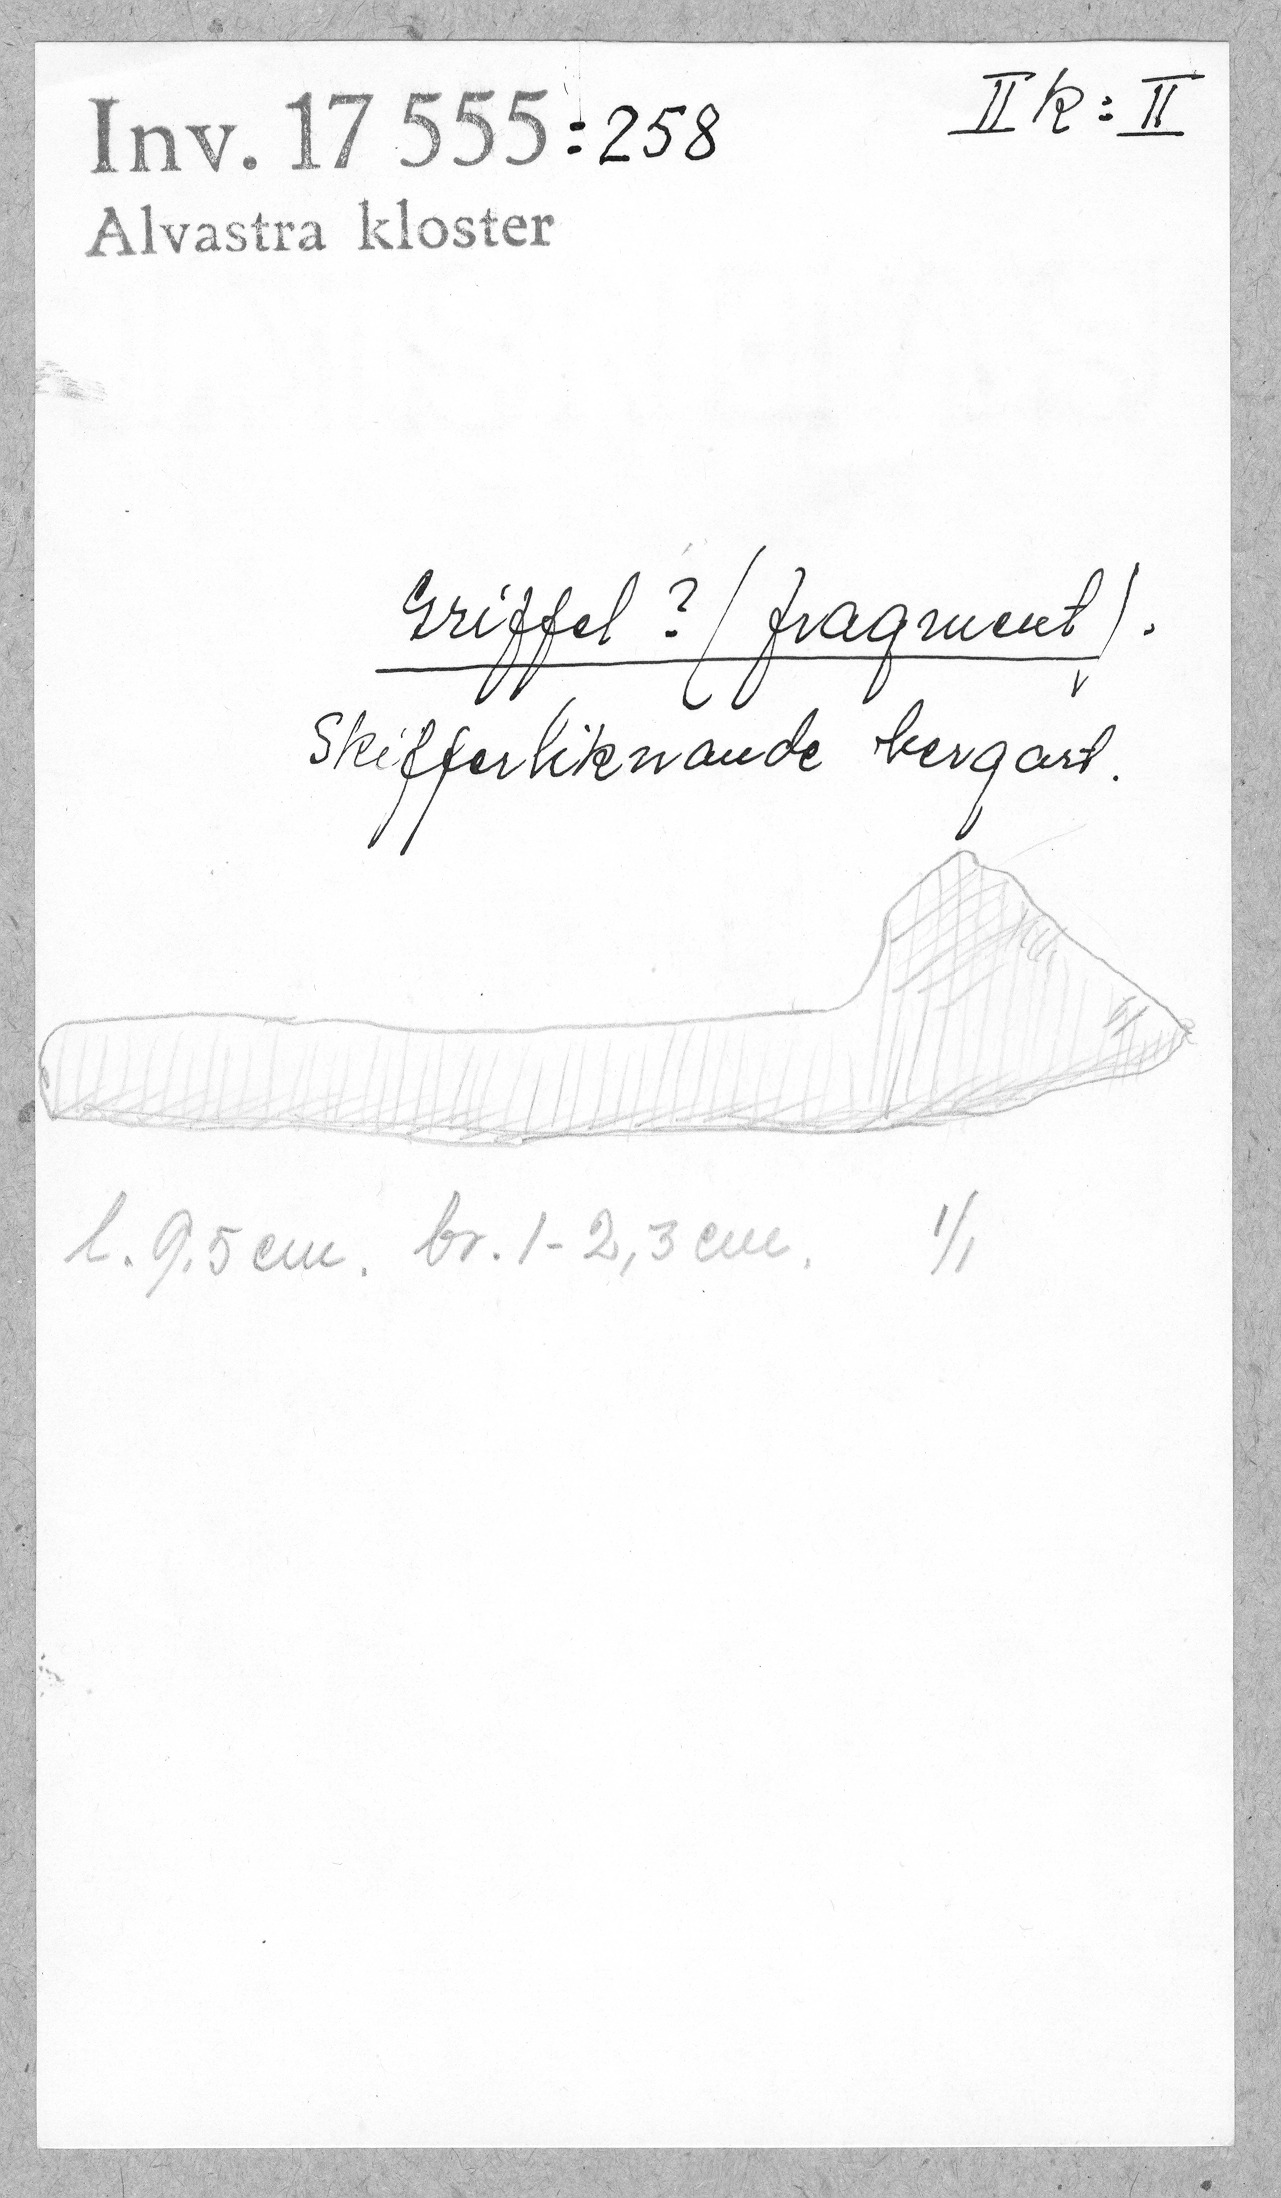 Inv. 17 555:258
II k: II
Alvastra kloster
Griffel? (fragment).
Skifferliknande bergart.
l. 9,5 cm. br. 1-2,3 cm. 1/1